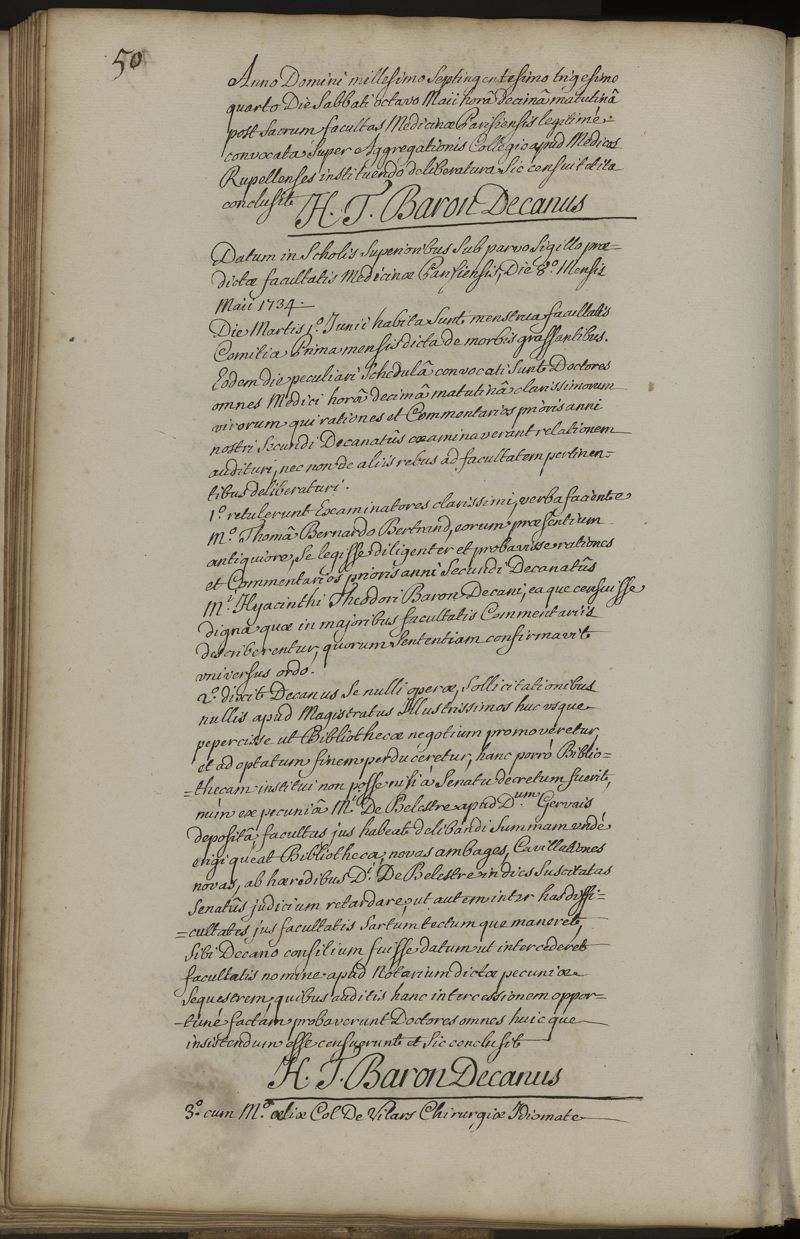 50
Anno Domini millesimo Septingentesimo trigesimo
quarto Die Sabbati octavo Maii horâ decimâ matutinâ
post Sacrum facultas Medicinæ Parisiensis legitimé
convocata Super Aggregationis Collegio apud Medicos
Rupellenses instituendo deliberatura Sic censuit et ita
conclusit H. T. Baron Decanus
Datum in Scholis Superioribus Sub parvo Sigillo præ=
dictæ facultatis Medicinæ Parisiensis, Die 8.º Mensis
Maii 1734.
Die Martis 1.º Junii habita Sunt menstrua facultatis
Comitia Prima mensis dicta de morbis grassantibus.
Eodem die peculiari Schedulâ convocati Sunt Doctores
omnes Medici horâ decimâ matutinâ clarissimorum
virorum qui rationes et Commentarios prioris anni
nostri Secundi Decanatûs examinaverant relationem
audituri, nec non de aliis rebus ad facultatem pertinen=
tibus deliberaturi.
1.º retulerunt Examinatores clarissimi, verba faciente
M.º Thomâ Bernardo Bertrand, eorum præsentium
antiquiore, Se legisse diligenter et probavisse rationes
et Commentarios prioris anni Secundi Decanatûs
M.i Hyacinthi Theodori Baron Decani, ea que censuisse
digna quæ in majoribus facultatis Commentariis
describerentur, quorum Sententiam confirmavit
universus ordo.
2.º dixit Decanus Se nulli operæ, Sollicitationibus
nullis apud Magistratus Illustrissimos huc usque
pepercisse ut Bibliothecæ negotium promoveretur,
et ad optatum finem perduceretur, hanc porró Biblio=
=thecam institui non posse nisi à Senatu decretum fuerit,
núm ex pecuniâ M.i De Belestre apud D.um Gervais
depositâ, facultas jus habeat delibandi Summam undé
erigi queat Bibliotheca, novas ambages, Cavillationes
novas, ab hæredibus D.i De Belestre in dies Suscitatas
Senatûs judicium retardare, ut autem inter has diffi=
=cultates jus facultatis Sartum tectum que maneret,
Sibi Decano consilium fuisse datum ut intercederet
facultatis nomine apud Notarium dictæ pecuniæ
Sequestrem, quibus auditis hanc intercessionem oppor=
=tuné factam probaverunt Doctores omnes huic que
insistendum esse censuerunt et Sic conclusit
H. T. Baron Decanus
3.º cum M.º Eliæ Col De Vilars Chirurgiæ Idiomate